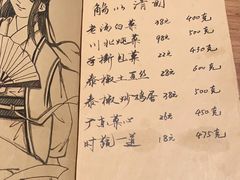 解以清
老汤白菜 38元 400克
川北凉菜 98元 600克
手撕包菜 22元 430克
泰椒土豆丝 28元 600克
泰椒炒鸡蛋 38元 500克
广东菜心 26元 450克
时蔬一道 18元 475克